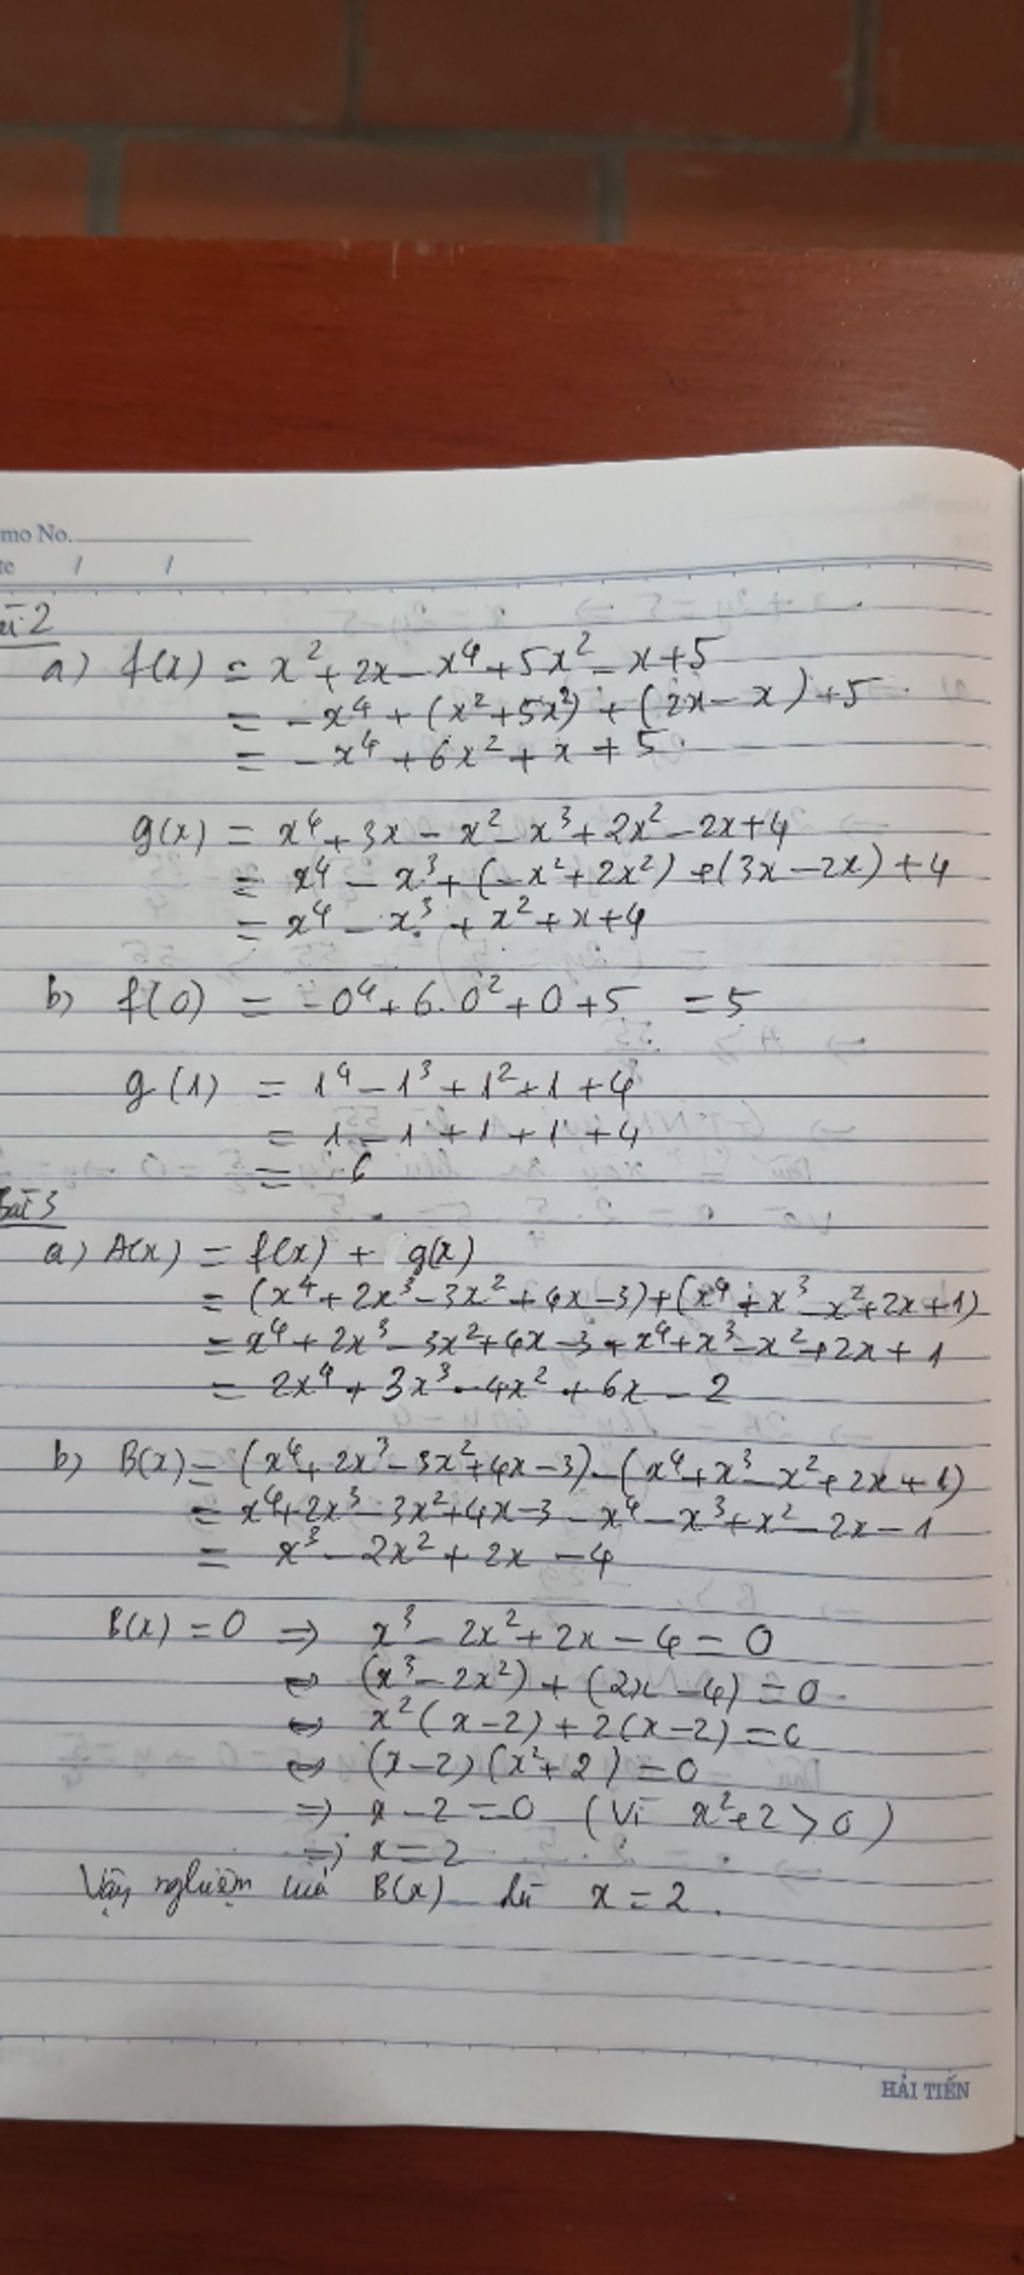 mo No.
te / /
ài 2
a) f(x) = x² + 2x - x⁴ + 5x² - x + 5
= -x⁴ + (x² + 5x²) + (2x - x) + 5
= -x⁴ + 6x² + x + 5.
g(x) = x⁴ + 3x - x² - x³ + 2x² - 2x + 4
= x⁴ - x³ + (-x² + 2x²) + (3x - 2x) + 4
= x⁴ - x³ + x² + x + 4
b) f(0) = -0⁴ + 6.0² + 0 + 5 = 5
g(1) = 1⁴ - 1³ + 1² + 1 + 4
= 1 - 1 + 1 + 1 + 4
= 6
Bài 3
a) A(x) = f(x) + g(x)
= (x⁴ + 2x³ - 3x² + 4x - 3) + (x⁴ + x³ - x² + 2x + 1)
= x⁴ + 2x³ - 3x² + 4x - 3 + x⁴ + x³ - x² + 2x + 1
= 2x⁴ + 3x³ - 4x² + 6x - 2
b) B(x) = (x⁴ + 2x³ - 3x² + 4x - 3) - (x⁴ + x³ - x² + 2x + 1)
= x⁴ + 2x³ - 3x² + 4x - 3 - x⁴ - x³ + x² - 2x - 1
= x³ - 2x² + 2x - 4
B(x) = 0 ⇒ x³ - 2x² + 2x - 4 = 0
⇔ (x³ - 2x²) + (2x - 4) = 0
⇔ x²(x - 2) + 2(x - 2) = 0
⇔ (x - 2)(x² + 2) = 0
⇒ x - 2 = 0 (Vì x² + 2 > 0)
⇒ x = 2
Vậy nghiệm của B(x) là x = 2.
HẢI TIẾN